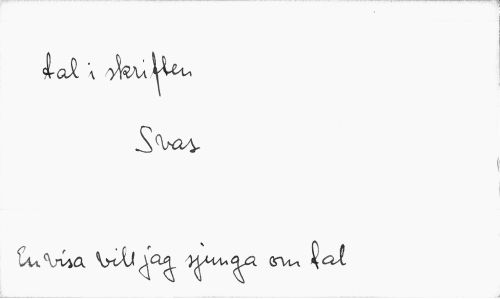 tal i skriften
Svas
En visa vill jag sjunga om tal